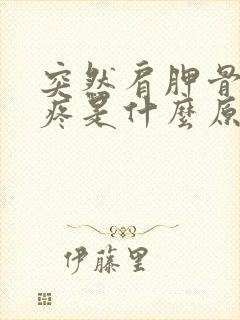 突然肩胛骨
疼是什麼原
伊藤里